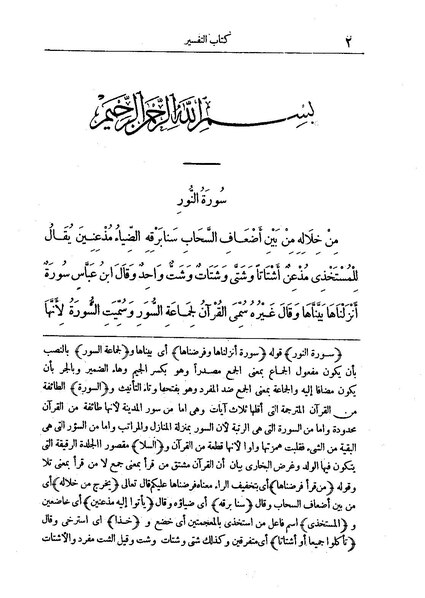 ٢ كتاب التفسير
بسم الله الرحمن الرحيم
سُورَةُ النُّورِ
مِنْ خِلَالِهِ مِنْ بَيْنِ أَضْعَافِ السَّحَابِ سَنَا بَرْقِهِ الضِّيَاءُ مُذْعِنِينَ يُقَالُ
لِلْمُسْتَخْذِى مُذْعِنٌ أَشْتَاتًا وَشَتَّى وَشَتَاتٌ وَشَتٌّ وَاحِدٌ وَقَالَ ابنُ عَبَّاسٍ سُورَةٌ
أَنْزَلْنَاهَا بَيَّنَّاهَا وَقَالَ غَيْرُهُ سُمِّىَ الْقُرْآنُ لِجَمَاعَةِ السُّوَرِ وَسُمِّيَتِ السُّورَةُ لِأَنَّهَا
﴿سورة النور﴾ قوله ﴿سورة أنزلناها وفرضناها﴾ أى بيناها و﴿لجماعة السور﴾ بالنصب
بأن يكون مفعول الجماع بمعنى الجمع مصدراً وهو بكسر الجيم وهاء الضمير وبالجر بأن
يكون مضافا إليه والجماعة بمعنى الجمع ضد المفرد وهو بفتحها وتاء التأنيث و﴿السورة﴾ الطائفة
من القرآن المترجمة التى أقلها ثلاث آيات وهى اما من سور المدينة لأنها طائفة من القرآن
محدودة واما من السورة التى هى الرتبة لأن السور بمنزلة المنازل والمراتب واما من السؤر التى هى
البقية من الشىء فقلبت همزتها واوا لأنها قطعة من القرآن و﴿السلا﴾ مقصورا الجلدة الرقيقة التى
يتكون فيها الولد وغرض البخارى بيان أن القرآن مشتق من قرأ بمعنى جمع لا من قرأ بمعنى تلا
وقوله ﴿من قرأ فرضناها﴾ أى بتخفيف الراء. معناه فرضنا عليكم قال تعالى ﴿يخرج من خلاله﴾ أى
من بين أضعاف السحاب وقال ﴿سنا برقه﴾ أى ضياؤه وقال ﴿يأتوا إليه مذعنين﴾ أى خاضعين
و﴿المستخذى﴾ اسم فاعل من استخذى بالمعجمتين أى خضع و﴿خذا﴾ أى استرخى وقال
﴿تأكلوا جميعا أو أشتاتا﴾ أى متفرقين وكذلك شتى وشتات وشت وقيل الشت مفرد والأشتات